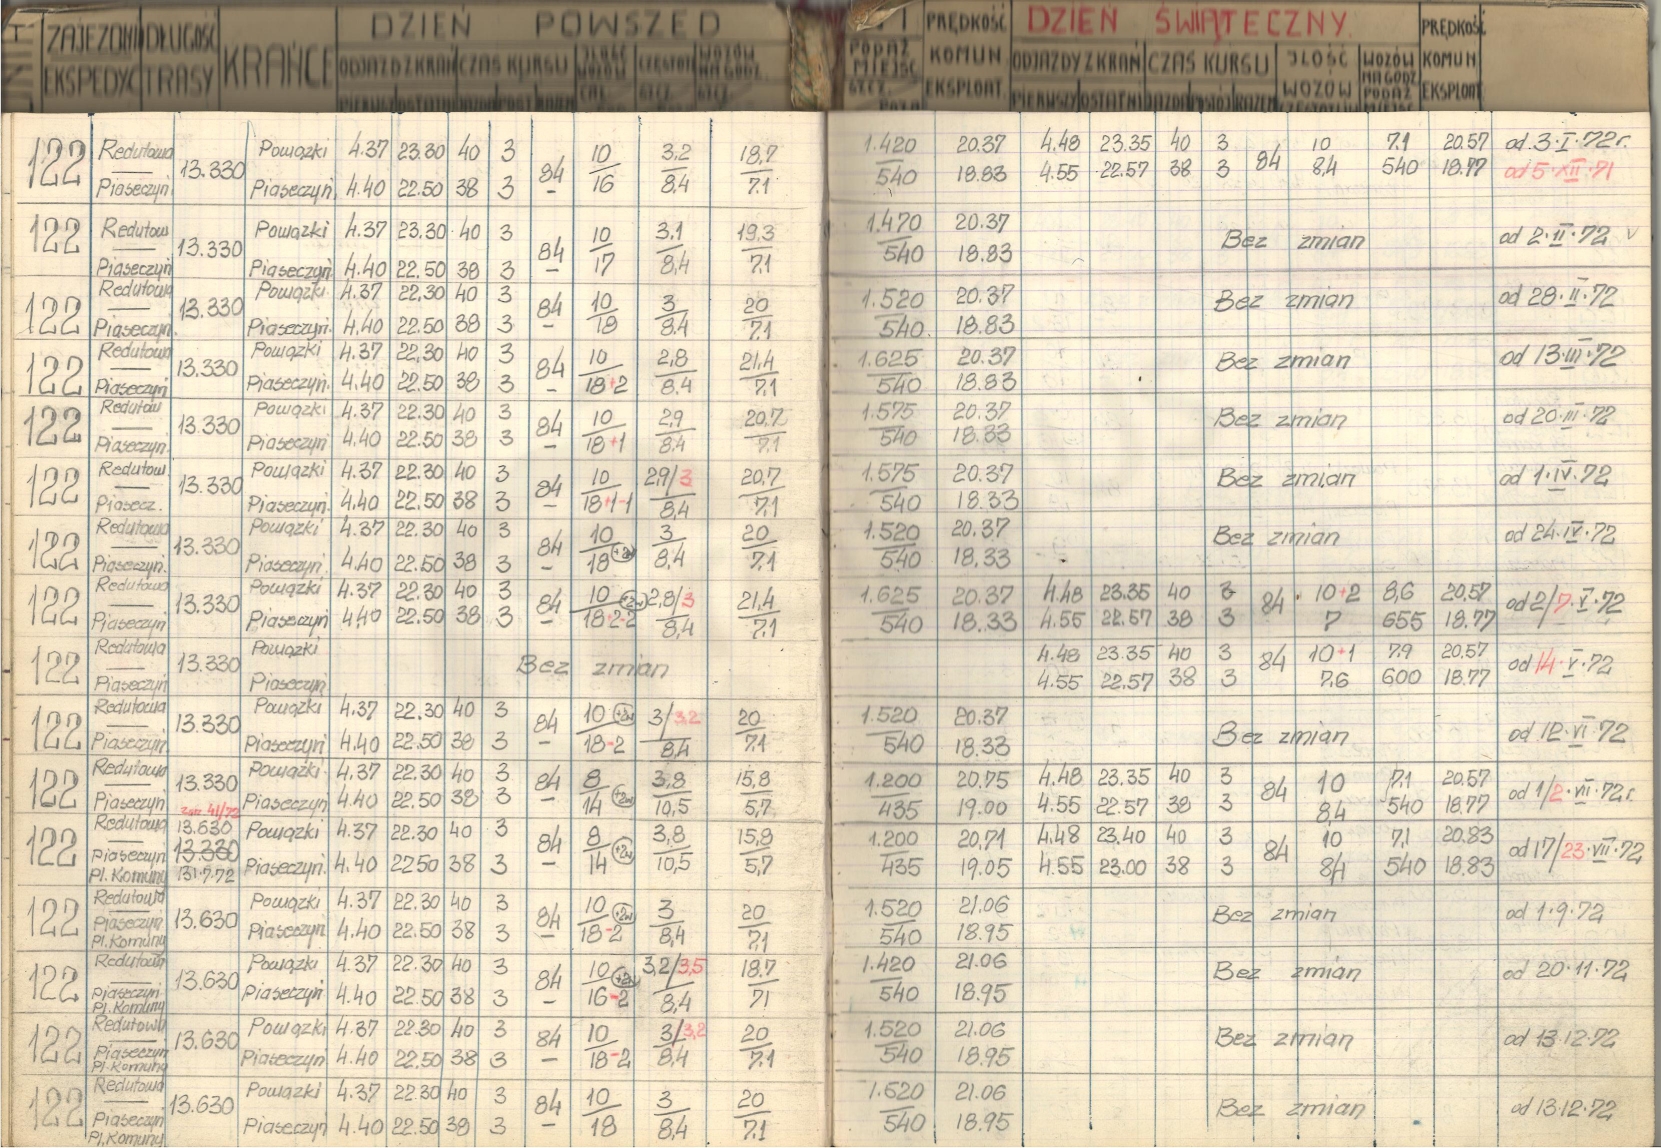 ZAJEZDNI DŁUGOŚĆ KRAŃCE DZIEŃ POWSZED
EKSPEDYC TRASY ODJAZD Z KRAN CZAS KURSU
PRĘDKOŚĆ DZIEŃ ŚWIĄTECZNY. PRĘDKOŚĆ
KOMUN ODJAZDY Z KRAN CZAS KURSU JLOŚĆ WOZÓW KOMUN
EKSPLOAT. PIERWSZY OSTATNI JAZDA POSTÓJ RAZEM WOZÓW EKSPLOAT
122 Redutowa 13.330 Powązki 4.37 23.30 40 3 84 10 3,2 18,7 1.420 20.37 4.48 23.35 40 3 84 10 7.1 20.57 od 3·I·72r.
— Piaseczyń. 4.40 22.50 38 3 — 16 8,4 7.1 540 18.83 4.55 22.57 38 3 8,4 540 18.77 od 5·XII·71
122 Redutow 13.330 Powązki 4.37 23.30 40 3 84 10 3,1 19,3 1.470 20.37 Bez zmian od 2·II·72
— Piaseczyń Piaseczyń 4.40 22.50 38 3 — 17 8,4 7.1 540 18.83
122 Redutowa 13.330 Powązki 4.37 22.30 40 3 84 10 3 20 1.520 20.37 Bez zmian od 28·II·72
— Piaseczyń. Piaseczyń. 4.40 22.50 38 3 — 18 8.4 7.1 540. 18.83
122 Redutowa 13.330 Powązki 4.37 22.30 40 3 84 10 2,8 21,4 1.625 20.37 Bez zmian od 13·III·72
— Piaseczyń Piaseczyń. 4.40 22.50 38 3 — 18+2 8.4 7.1 540 18.83
122 Redutów 13.330 Powązki 4.37 22.30 40 3 84 10 2,9 20,7 1.575 20.37 Bez zmian od 20·III·72
— Piaseczyń. Piaseczyń 4.40 22.50 38 3 — 18+1 8.4 7.1 540 18.33
122 Redutow. 13.330 Powązki 4.37 22.30 40 3 84 10 2,9/3 20,7 1.575 20.37 Bez zmian od 1·IV·72
— Piasecz. Piaseczyń. 4.40 22.50 38 3 — 18+1-1 8,4 7.1 540 18.33
122 Redutowa 13.330 Powązki 4.37 22.30 40 3 84 10 3 20 1.520 20.37 Bez zmian od 24·IV·72
— Piaseczyń. Piaseczyń. 4.40 22.50 38 3 — 18 +2w 8,4 7.1 540 18.33
122 Redutowa 13.330 Powązki 4.37 22.30 40 3 84 10 +2w 2,8/3 21,4 1.625 20.37 4.48 23.35 40 3 84 10+2 8,6 20,57 od 2/7·V·72
— Piaseczyń Piaseczyń 4.40 22.50 38 3 — 18-2-2 8,4 7.1 540 18.33 4.55 22.57 38 3 7 655 18.77
122 Redutowa 13.330 Powązki Bez zmian 4.48 23.35 40 3 84 10+1 7.9 20.57 od 14·V·72
— Piaseczyń Piaseczyń 4.55 22.57 38 3 7,6 600 18.77
122 Redutowa 13.330 Powązki 4.37 22.30 40 3 84 10 +2w 3/3,2 20 1.520 20.37 Bez zmian od 12·VI·72
— Piaseczyń Piaseczyń 4.40 22.50 38 3 — 18-2 8,4 7.1 540 18.33
122 Redutowa 13.330 Powązki 4.37 22.30 40 3 84 8 3,8 15,8 1.200 20.75 4.48 23.35 40 3 84 10 7.1 20.57 od 1/2·VII·72r.
— Piaseczyń 41/72 Piaseczyń 4.40 22.50 38 3 — 14 +2w 10,5 5,7 435 19.00 4.55 22.57 38 3 8,4 540 18.77
122 Redutowa 13.630 Powązki 4.37 22.30 40 3 84 8 3,8 15,8 1.200 20,71 4.48 23.40 40 3 84 10 7,1 20.83 od 17/23·VII·72
— Piaseczyń 13.330 Piaseczyń. 4.40 22.50 38 3 — 14 +2w 10,5 5,7 435 19.05 4.55 23.00 38 3 8,4 540 18.83
Pl. Komuny 31·7·72
122 Redutowa 13.630 Powązki 4.37 22.30 40 3 84 10 +2w 3 20 1.520 21.06 Bez zmian od 1·9·72
— Piaseczyń Piaseczyń 4.40 22.50 38 3 — 18-2 8,4 7.1 540 18.95
Pl.Komuny
122 Redutowa 13.630 Powązki 4.37 22.30 40 3 84 10 +2w 3,2/3,5 18.7 1.420 21.06 Bez zmian od 20·11·72
— Piaseczyń Piaseczyń 4.40 22.50 38 3 — 16-2 8,4 71 540 18.95
Pl.Komuny
122 Redutowa 13.630 Powązki 4.37 22.30 40 3 84 10 3/3,2 20 1.520 21.06 Bez zmian od 13·12·72
— Piaseczyń Piaseczyń 4.40 22.50 38 3 — 18-2 8,4 7.1 540 18.95
Pl.Komuny
122 Redutowa 13.630 Powązki 4.37 22.30 40 3 84 10 3 20 1.620 21.06 Bez zmian od 13·12·72
— Piaseczyń Piaseczyń 4.40 22.50 38 3 — 18 8,4 7.1 540 18.95
Pl.Komuny